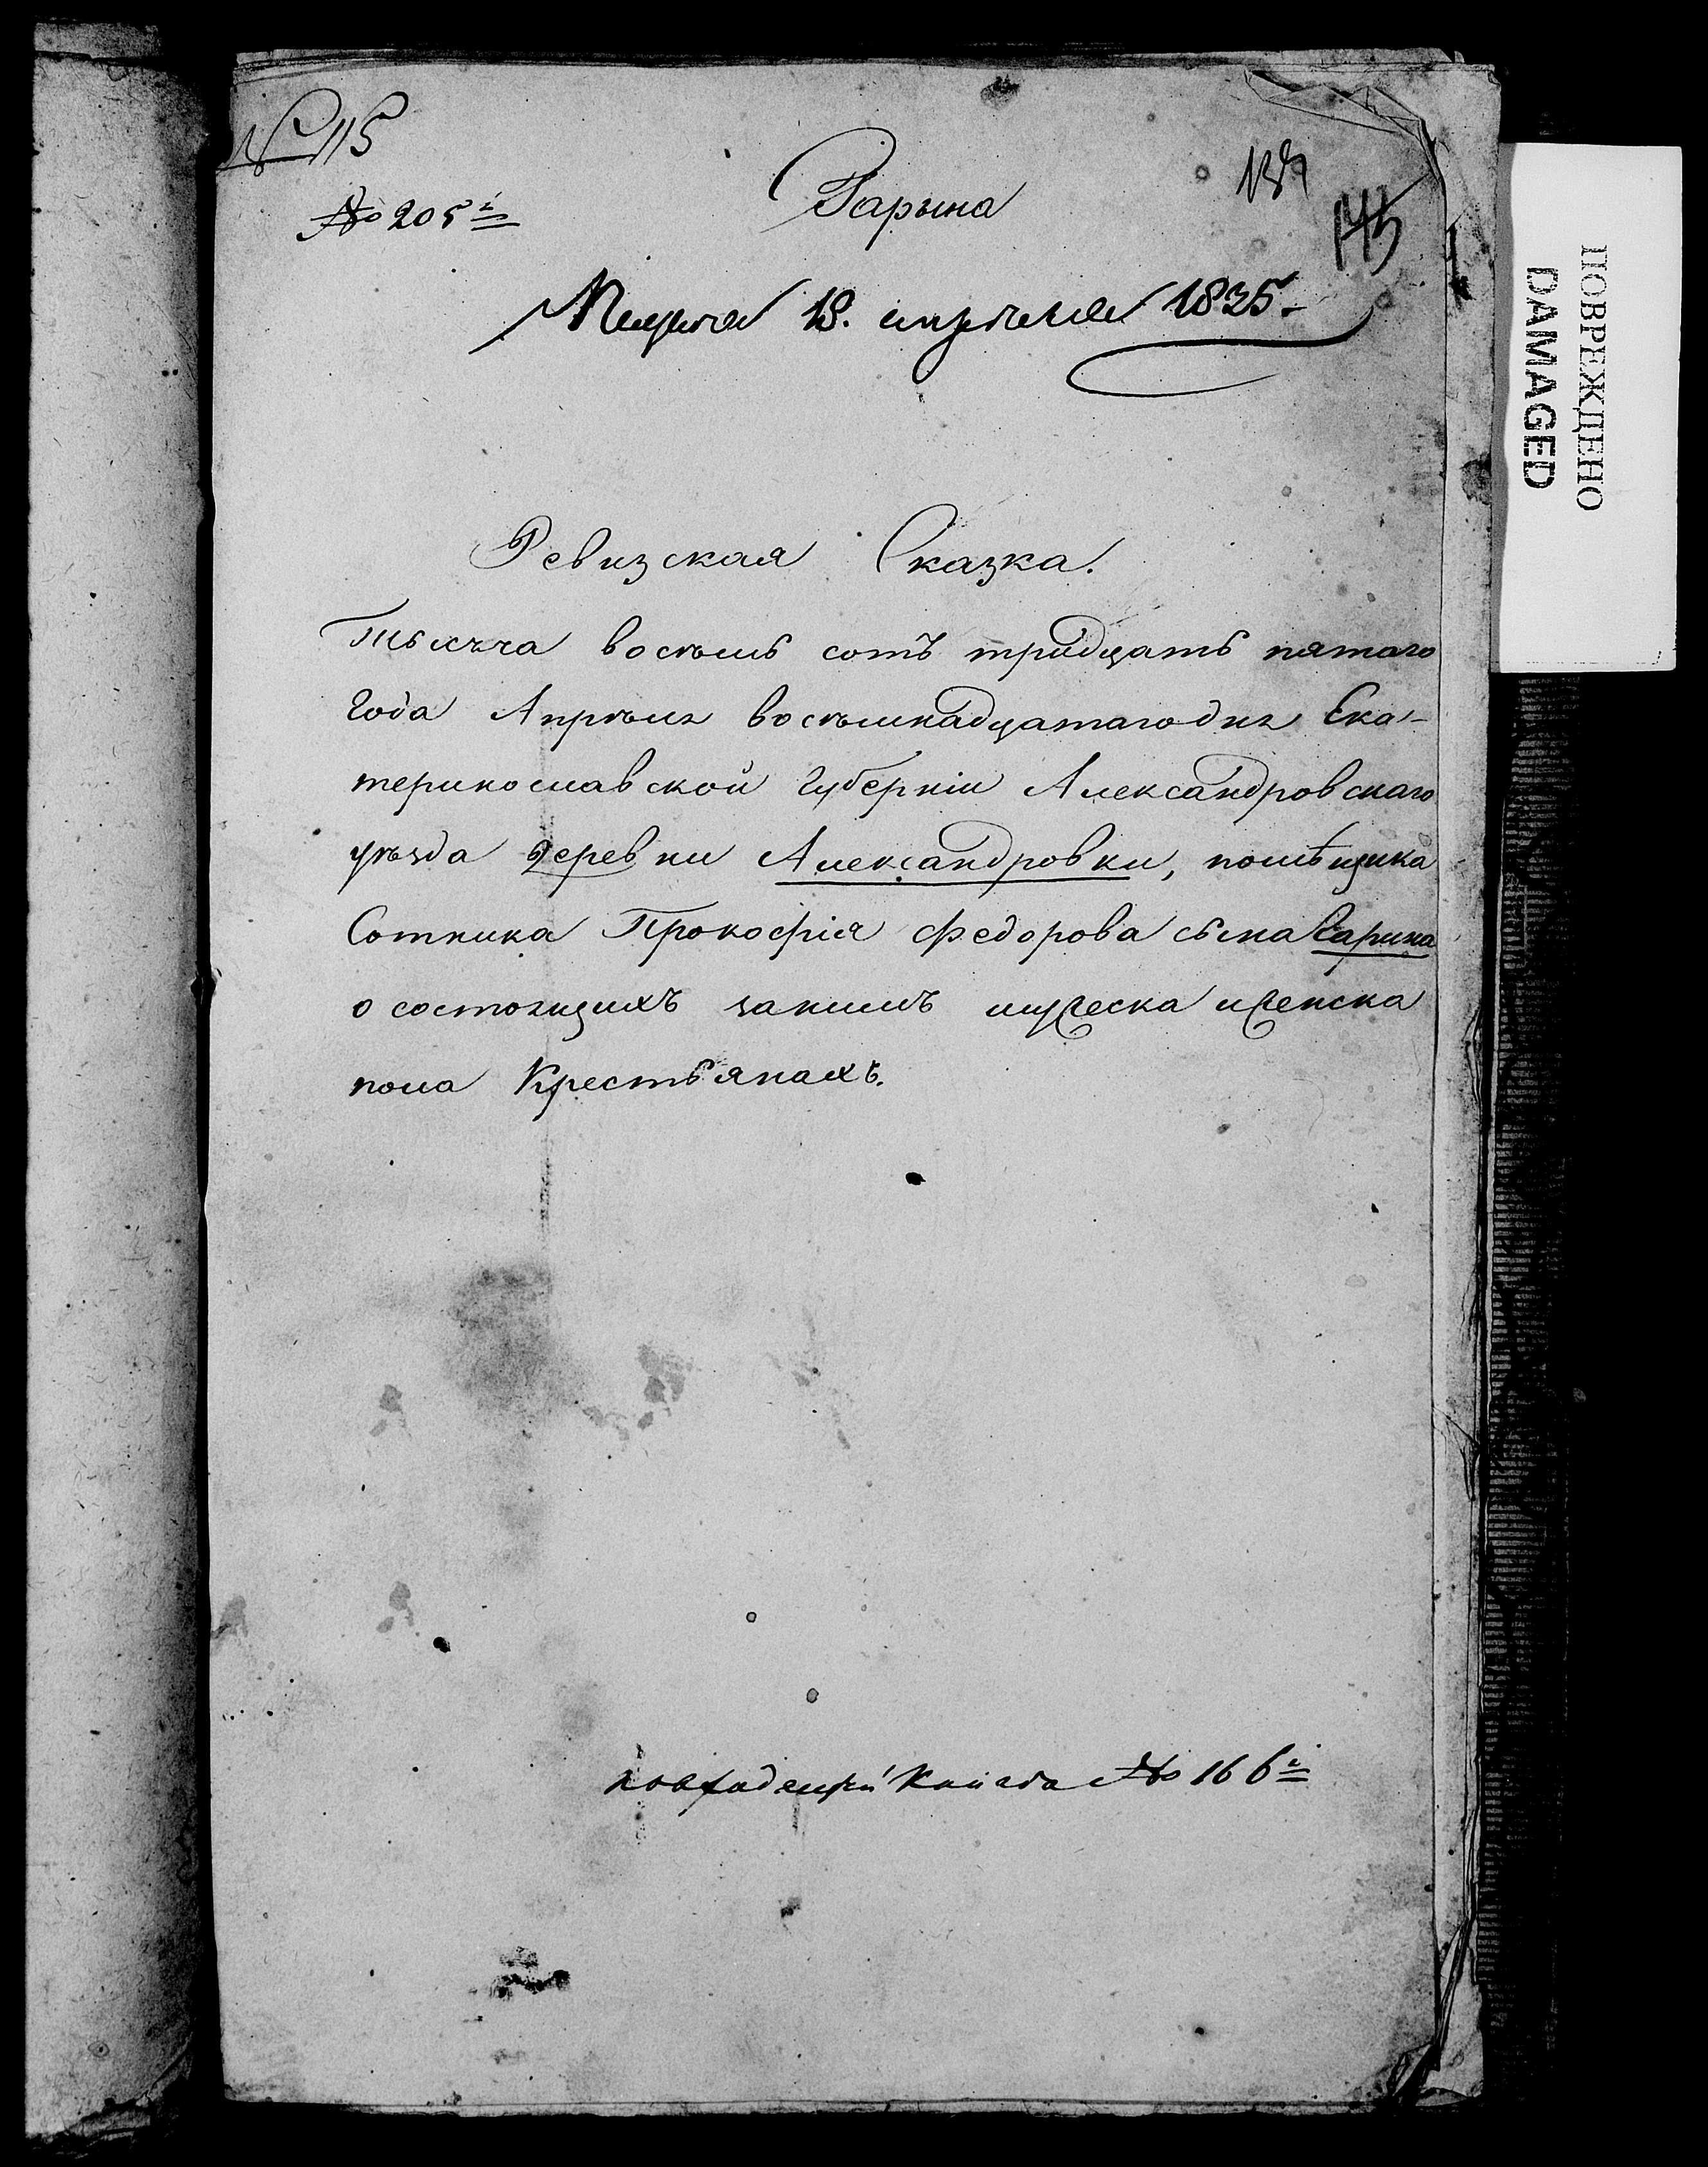 № 115
№ 205й
Зарына
145
Подана 18. апреля 1835.
Ревизская Сказка.
Тысяча восемь сотъ тридцать пятаго
года Апреля восемьнадцатаго дня Ека-
теринославской губерніи Александровскаго
уезда деревни Александровки, помѣщика
Сотника Прокофія Федорова сына Зарина
о состоящихъ занимъ мужеска иженска
пола Крестьянахъ.
повходящей Книга № 166й
ПОВРЕЖДЕНО
DAMAGED